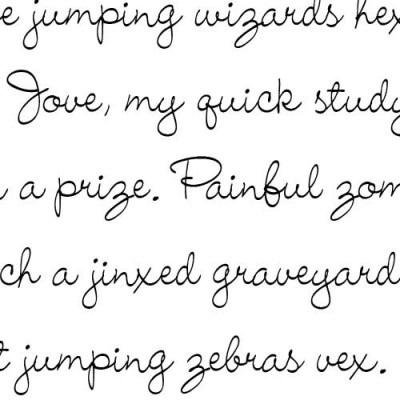 e jumping wizards hex
Jove, my quick study
a prize. Painful zom
ch a jinxed graveyard
t jumping zebras vex.